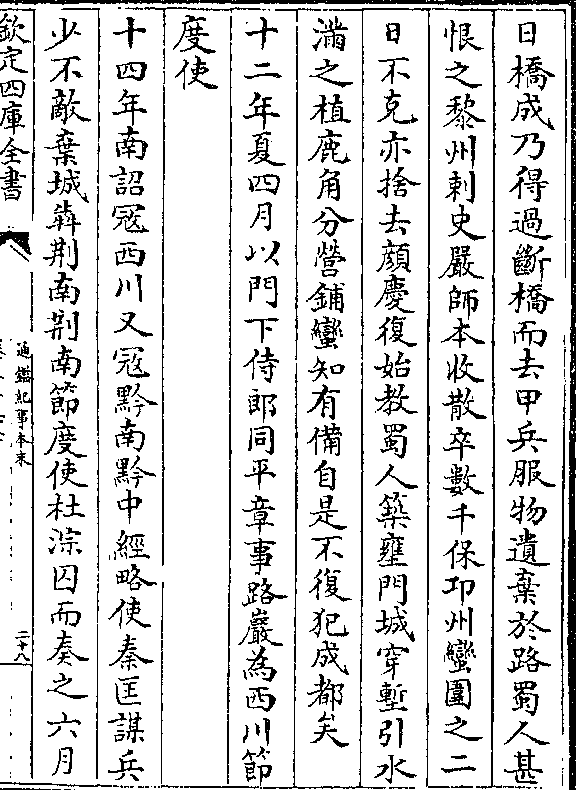 日橋成乃得過斷橋而去甲兵服物遺棄於路蜀人甚
恨之黎州刺史嚴師本收散卒數千保邛州蠻圍之二
日不克亦捨去顔慶復始教蜀人築壅門城穿塹引水
滿之植鹿角分營鋪蠻知有備自是不復犯成都矣
十二年夏四月以門下侍郎同平章事路巖為西川節
度使
十四年南詔冦西川又冦黔南黔中經略使秦匡謀兵
少不敵棄城奔荆南荆南節度使杜悰囚而奏之六月
欽定四庫全書
通鑑紀事本末
二十八